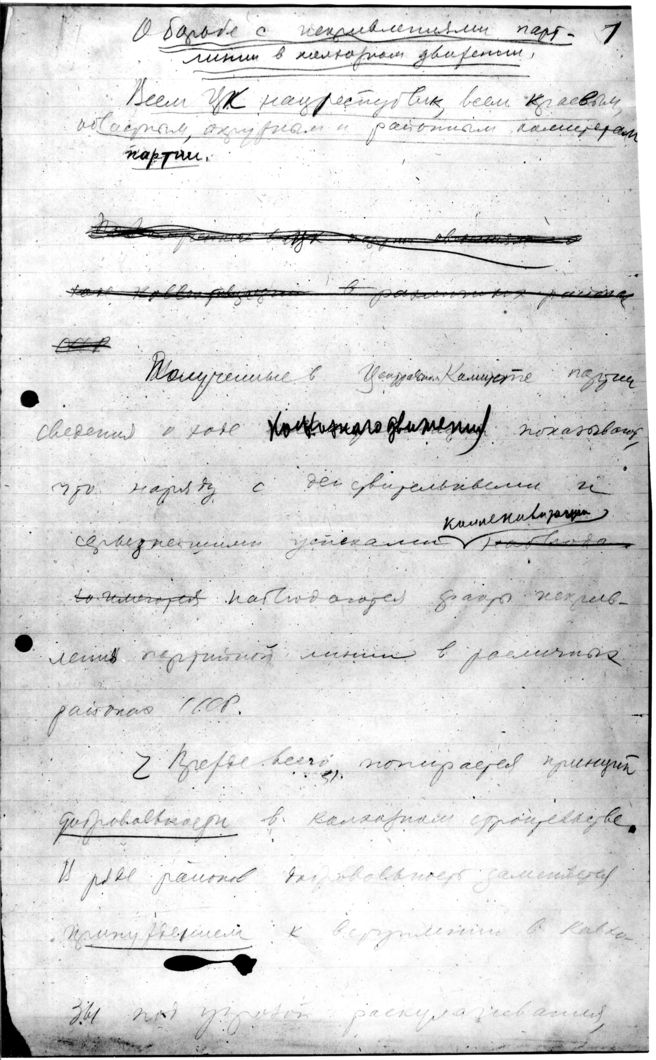 О борьбе с искривлениями парт-
линии в колхозном движении.
1
Всем ЦК нацреспублик, всем краевым
областным, окружным и районным комитетам
партии.
в ЦК
коллективизации в различных районах
СССР
Полученные в Центральном Комитете партии
сведения о ходе колхозного движения показывают,
что наряду с действительными и
коллективизации
серьезнейшими успехами
наблюдаются факты искрив-
ления партийной линии в различных
районах СССР.
Прежде всего, попирается принцип
добровольности в колхозном строительстве.
В ряде районов добровольность заменяется
принуждением к вступлению в колхо-
зы под угрозой раскулачивания,